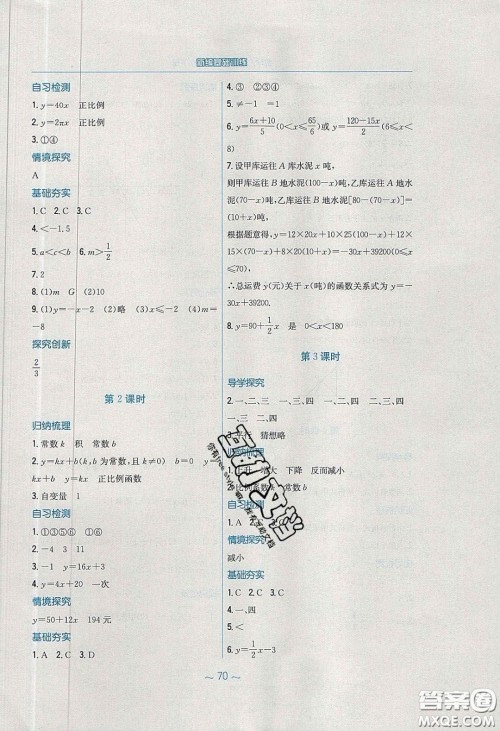 新编基础训练
自习检测
1. y=40x 正比例
2. y=2πx 正比例
3. ①④
情境探究
A
基础夯实
1. C 2. C 3. C
4. <-1.5
5. a<c<b 6. m>1/2
7. 2
8. (1)m G (2)10
9. (1)y=-x-2 (2)略 (3)x≤-2 (4)m=
-8
探究创新
2/3
第2课时
归纳梳理
1. 常数k 积 常数b
2. y=kx+b(k、b为常数,且k≠0) b=0 y=
kx y=kx 正比例函数
3. 自变量 1
自习检测
1. ①③⑤⑥ ①⑥
2. -4 3 11
3. -1 y=16x+3
4. y=4x+20 一次
情境探究
y=50+12x 194元
基础夯实
1. A 2. C 3. D
4. ③ ②③④
5. ≠-1 =1
6. y=6x+10/5(0<x≤65/6)或y=120-15x/2(6≤x<
8)
7. 设甲库运往A库水泥x吨,
则甲库运往B地水泥(100-x)吨,乙库运往A
地水泥(80-x)吨,乙库运往B地水泥[80-(70-x)]=
(10+x)吨,
根据题意得,y=12×20x+10×25(100-x)+12×
15×(70-x)+8×20(10+x)=-30x+39200(0≤x
≤70),
∴总运费y(元)关于x(吨)的函数关系式为y=-
30x+39200.
8. y=90+1/2x 是 0<x<180
第3课时
导学探究
1. 一、三 一、二、三 一、三、四 二、四 一、二、四
猜想略
上升 增大 下降 反而减小
常数b
自习检测
1. A
情境探究
减小
基础夯实
1. C 2. C
3. 一、四
4. < 5. <
6. y=1/2x-3
~70~
答案圈
MXQE.COM